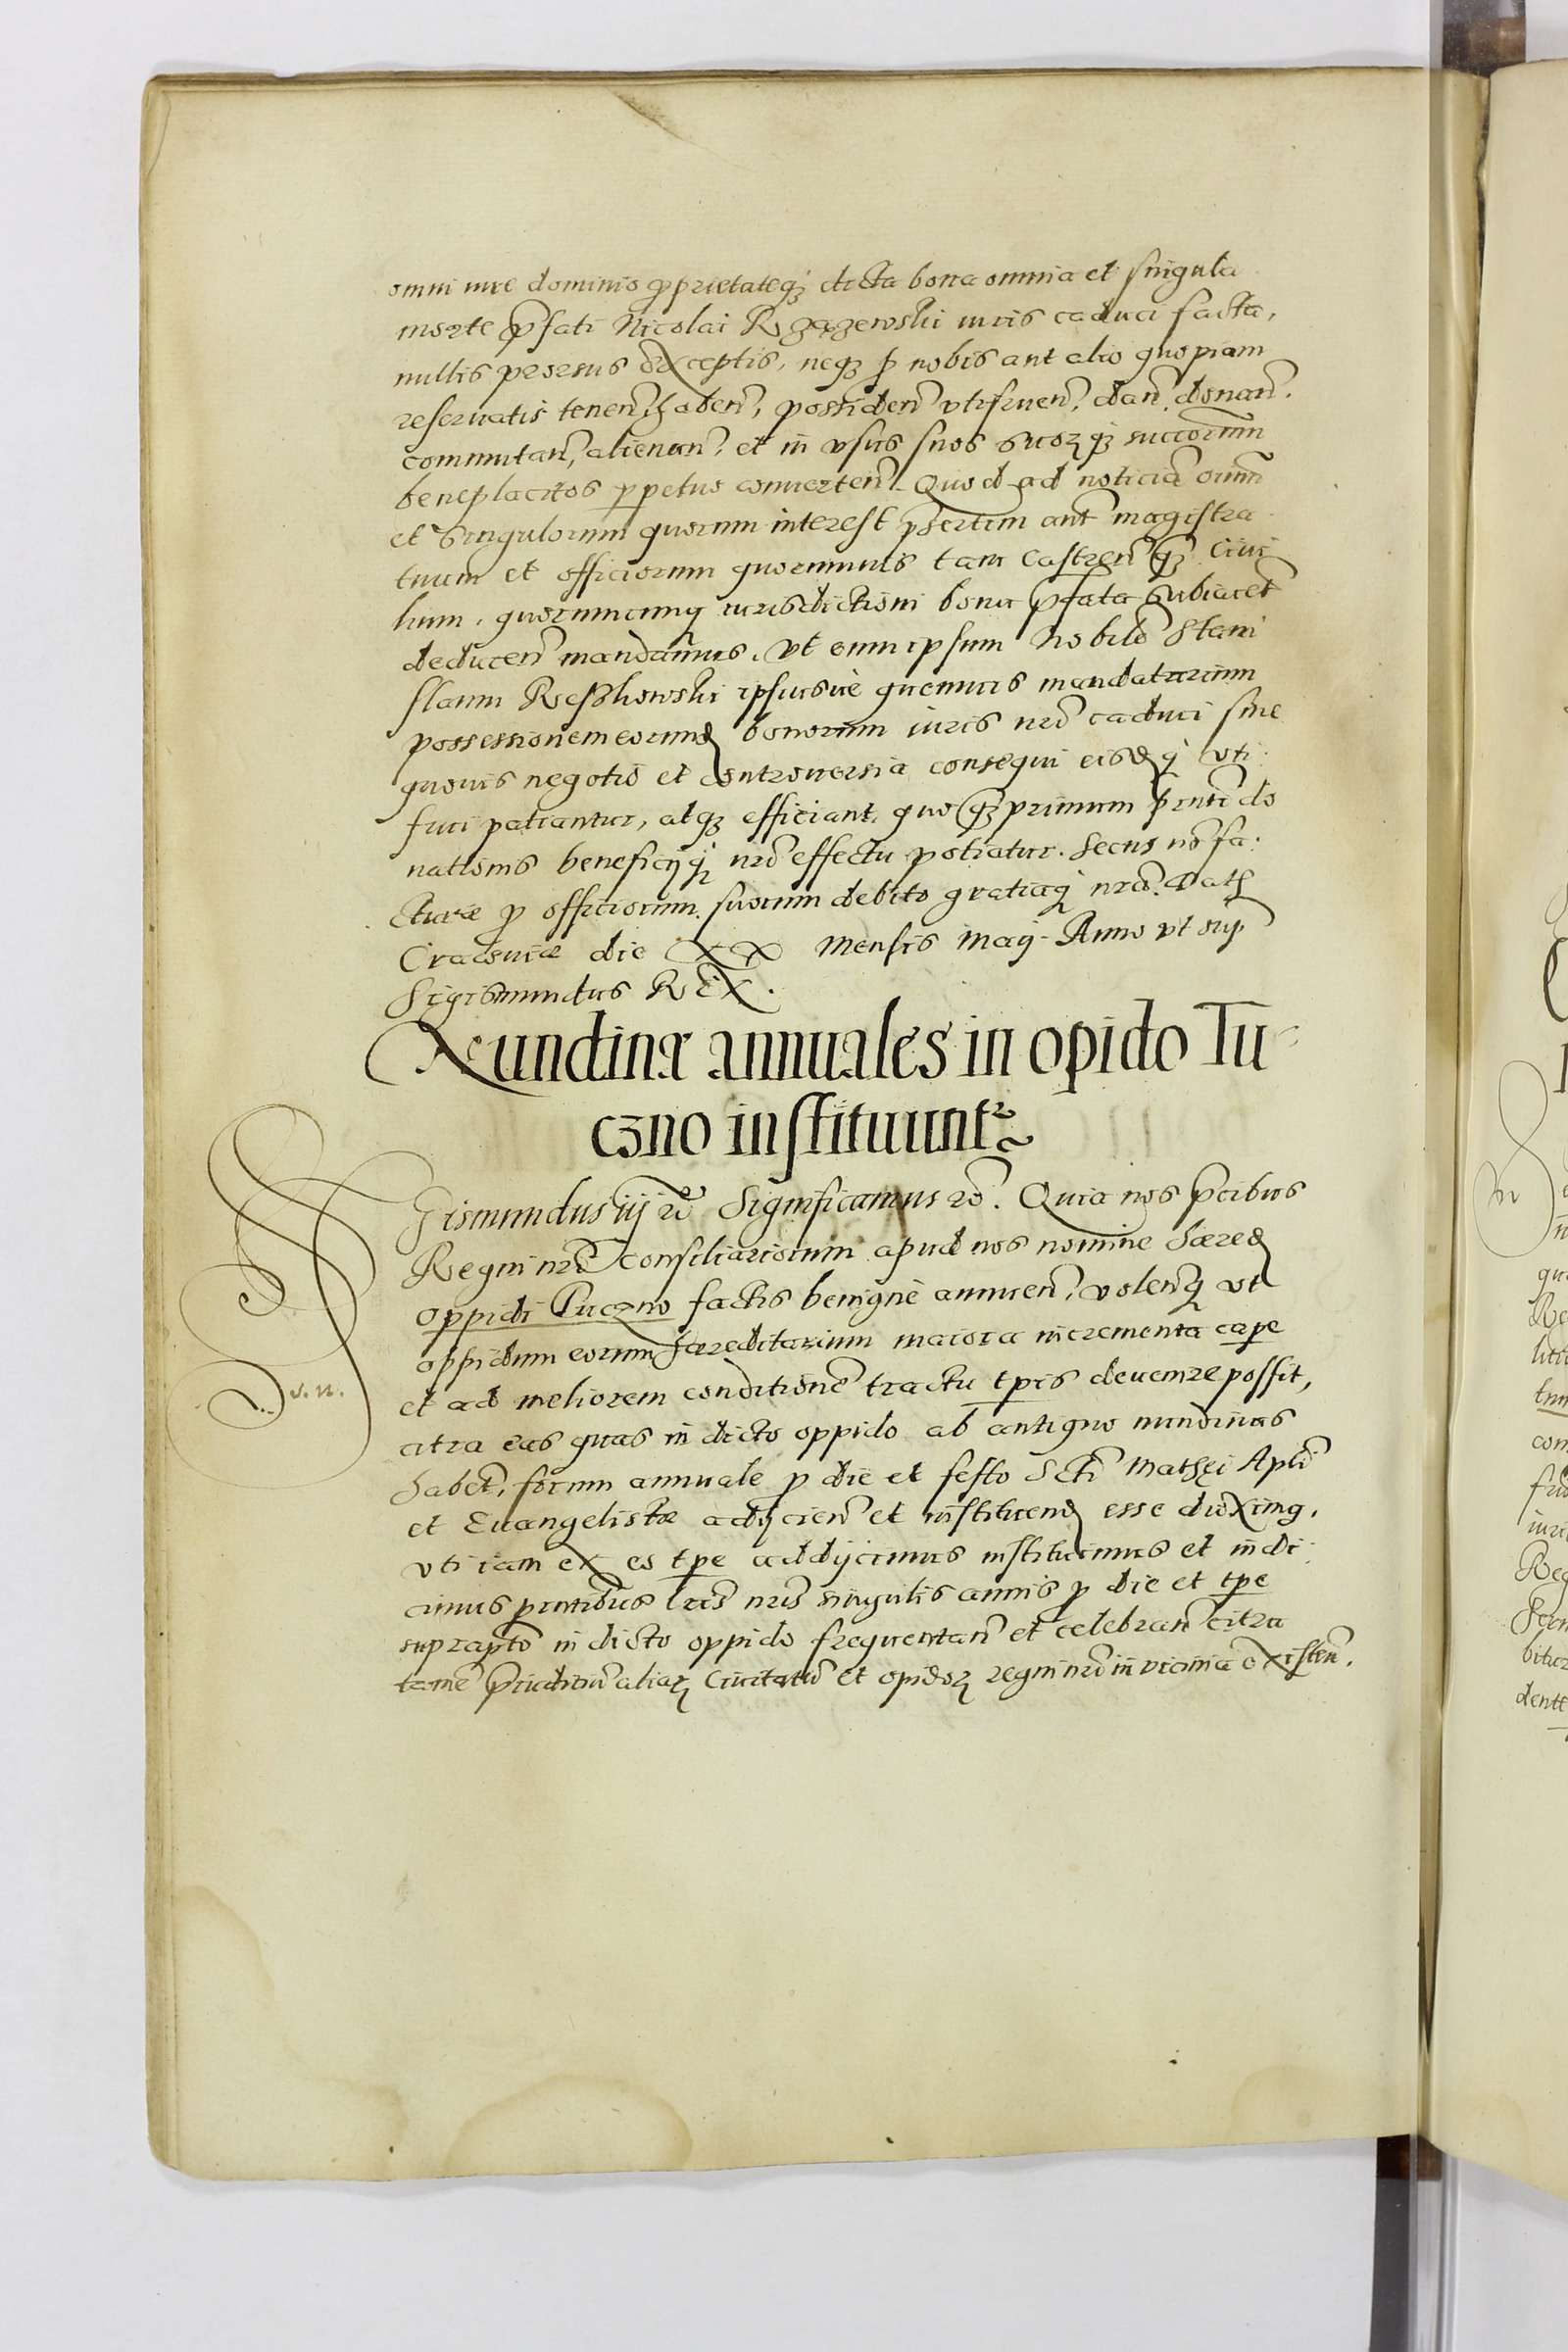 omni iure dominio proprietateq3 dicta bona omnia et singula
morte pfati Nicolai Rzązewski iuris caduci facta,
nullis prorsus exceptis, neq3 p nobis aut alio quopiam
reservatis tenen, haben, possiden utifruen, dan, donan,
commutan, alienan, et in usus suos suorq3 succorum
beneplacitos perpetuo converten. Quod ad noticia oium
et singulorum quorum interest psertim aut magistra
tuum et officiorum quorumvis tam Castren q3 Civi
lium, quorumcunq iurisdictioni bona pfata subiacet
deducen mandamus, ut eum ipsum Nobile Stani
slaum Reszkowski ipsiusve quemvis mandatarium
possessionem eorund bonorum iuris nri caduci sine
quovis negotio et controversia consequi eisdq uti
frui patiantur, atq3 efficiant, quo q3primum pnti do
nationis beneficijq nri effectu potiatur. Secus no fa:
cturae p officiorum suorum debito gratiaq nra. Dat
Cracoviae die XX Mensis Maij. Anno ut sup
Sigismundus REX.
Nundinae annuales in opido Tu
czno instituunt
Sigismundus iij etc Significamus etc. Quia nos pcibus
Regni nri consiliariorum apud nos nomine haered
oppidi Tuczno factis benigne annuen, volenq ut
oppidum eorum haereditarium maiora incrementa cape
et ad meliorem conditione tractu tpis devenire possit,
citra eas quas in dicto oppido ab antiquo nundinas
habet, forum annuale p die et festo Scti Mathei Apli
et Evangelistae adijcien et instituend esse duximq,
uti iam ex eo tpe addijcimus instituimus et indi
cimus pntibus lris nris singulis annis p die et tpe
suprapto in dicto oppido frequentan et celebran citra
tame piuditiu aliar Civitatu et opidor regni nri in vicinia existen.
S. N.